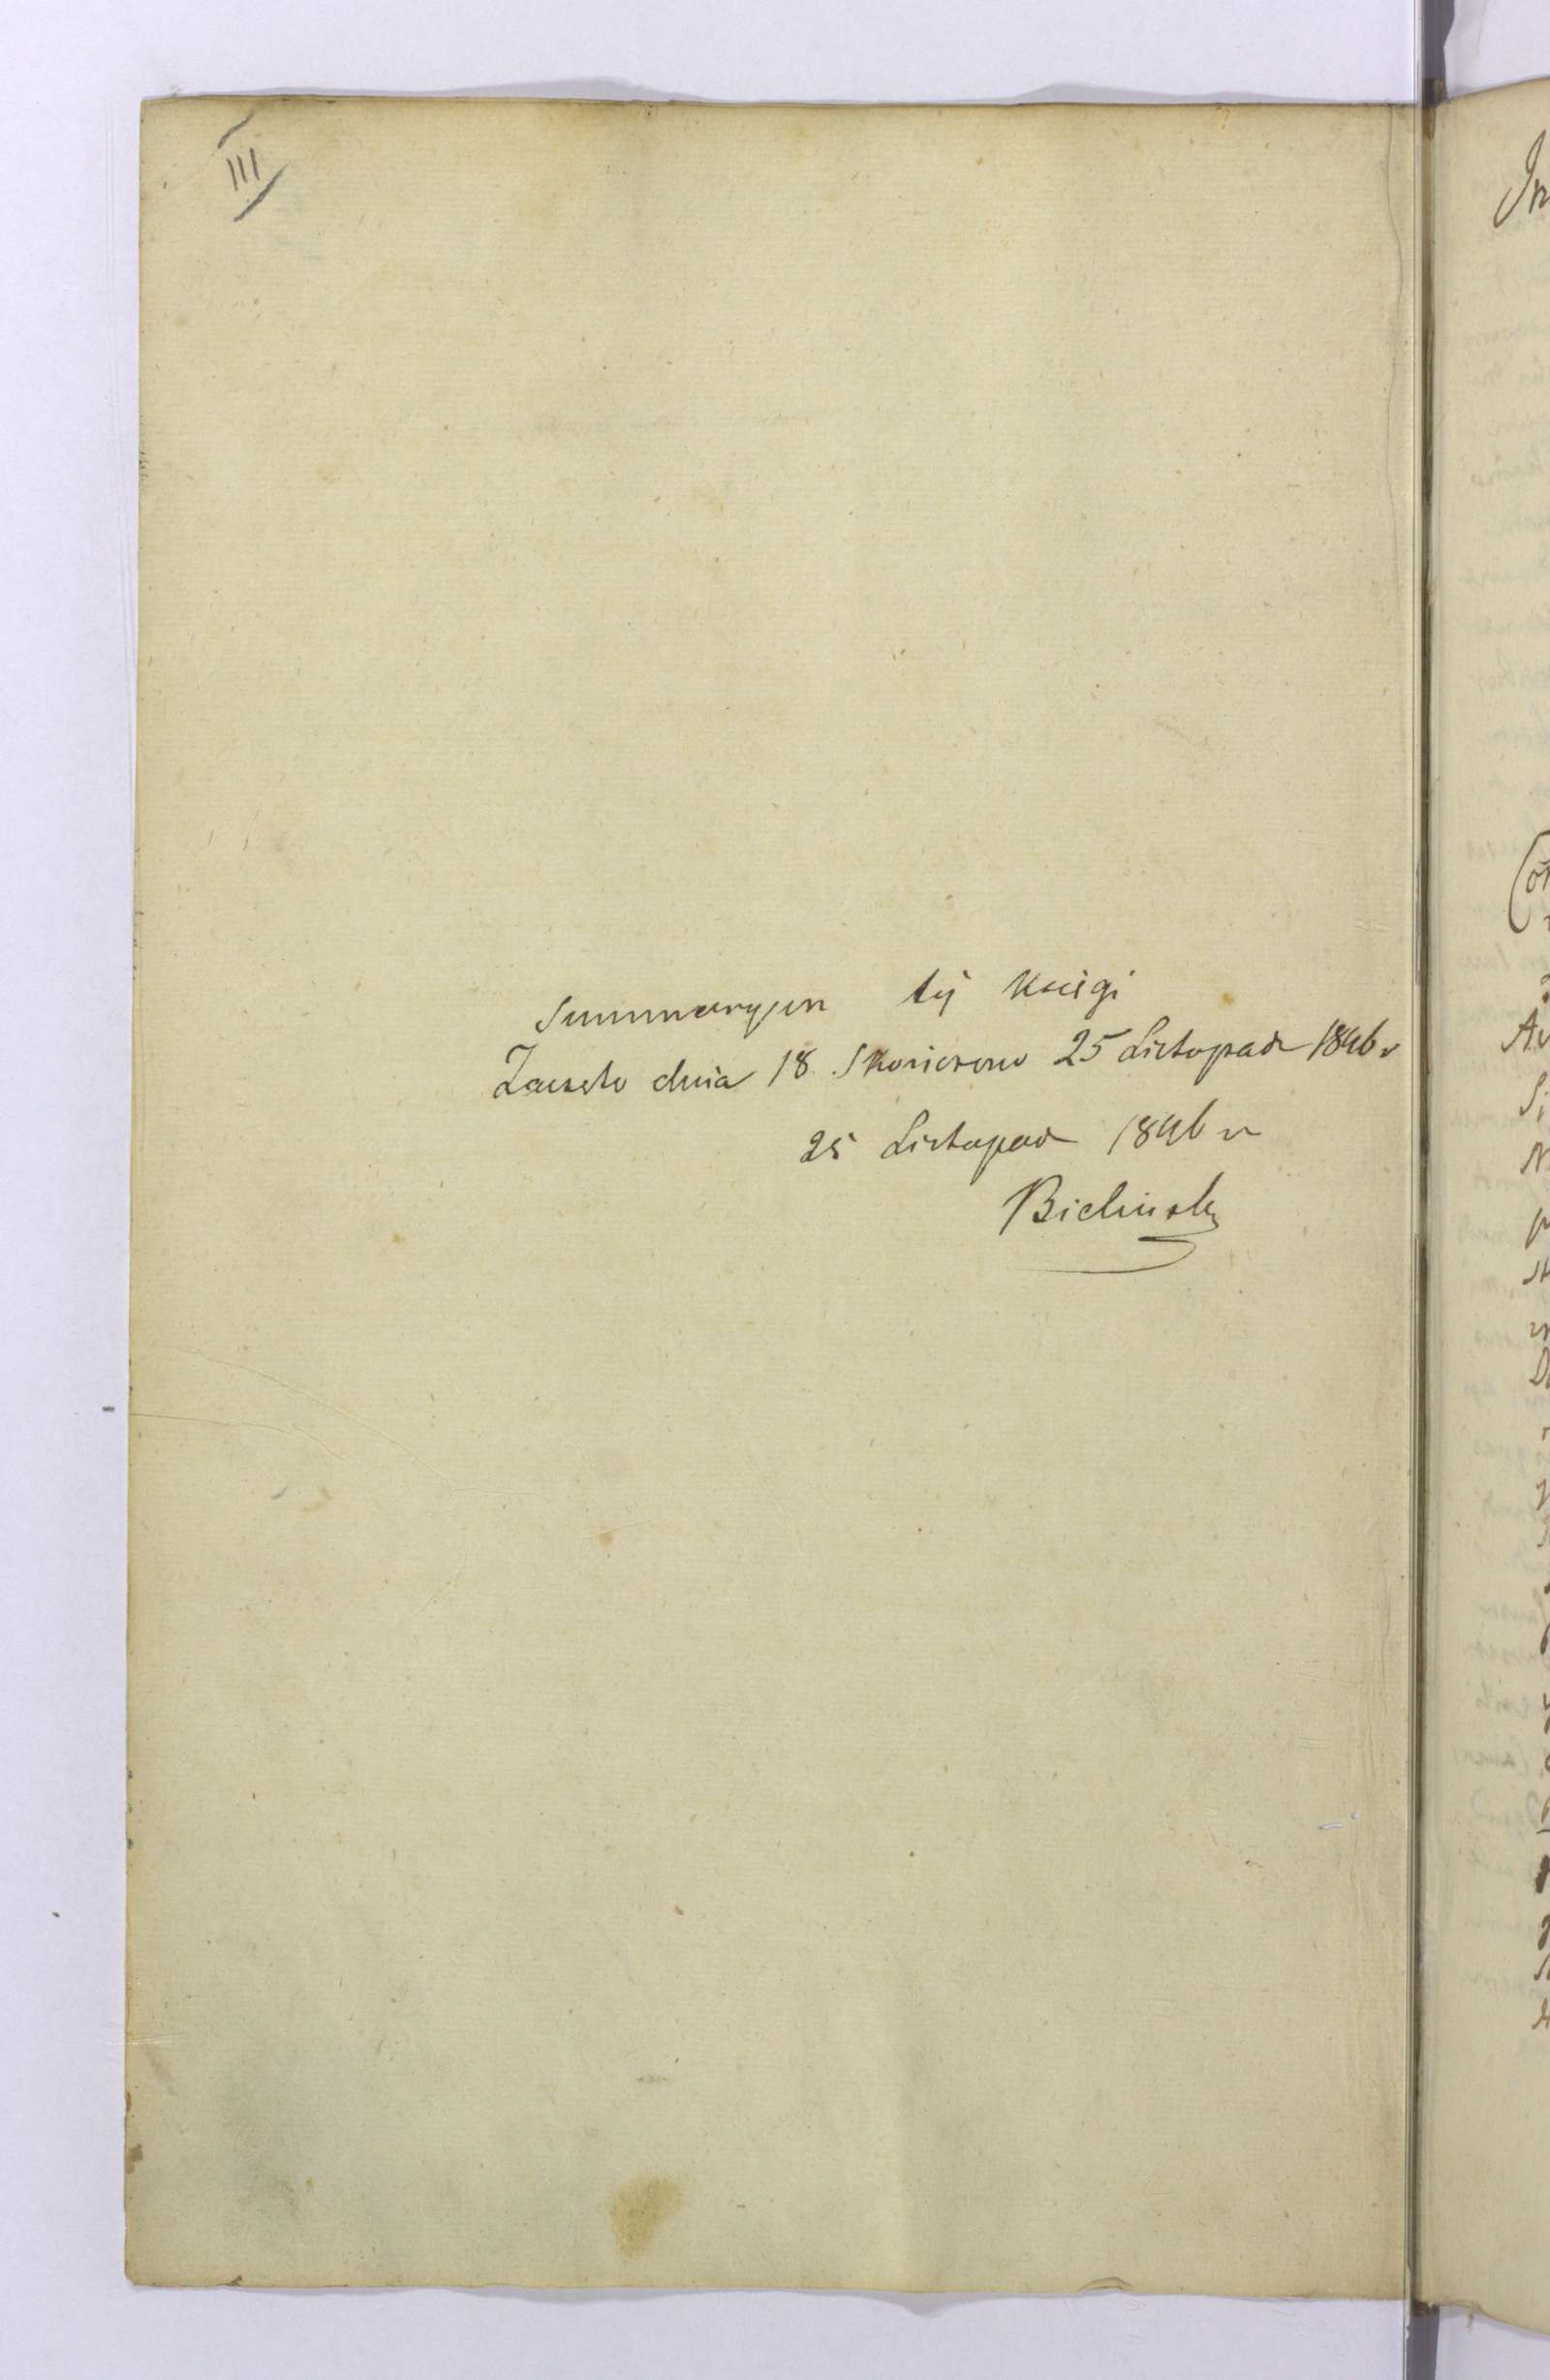 III
Summaryum tý Księgi
Zaczęto dnia 18 Skończono 25 Listopada 1846 r
25 Listopada 1846 r
Bieliński